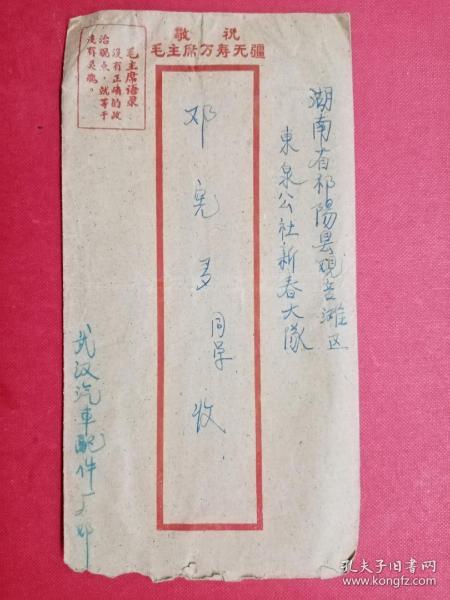 敬祝
毛主席万寿无疆
毛主席语录
没有正确的政
治观点，就等于
没有灵魂。
湖南省祁陽县观音滩区
東泉公社新春大隊
邓宪多同学收
武汉汽車配件厂邓
孔夫子旧书网
www.kongfz.com